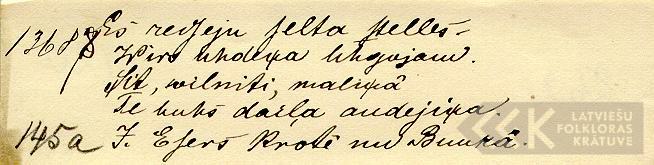 13688 Es redseju selta stelles
Wirs uhdeņa lihgojam.
Sit, wilniti, maliņâ
Te buhs daiļa audejiņa.
145a J. Esers Krotē un Bunkâ.
LATVIEŠU
FOLKLORAS
KRĀTUVE